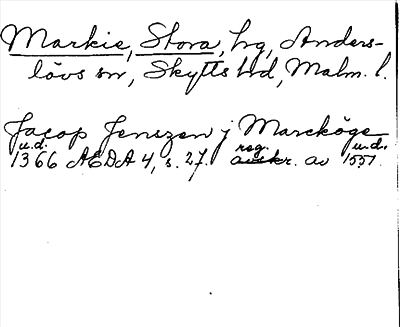 Markie, Stora, hg, Anders-
lövs sn, Skytts hd, Malm. l.
Jacop Jenszen j Marcköge
u.d. reg. u.d.
1366 AEDA 4, s. 27. avskr. av 1551.